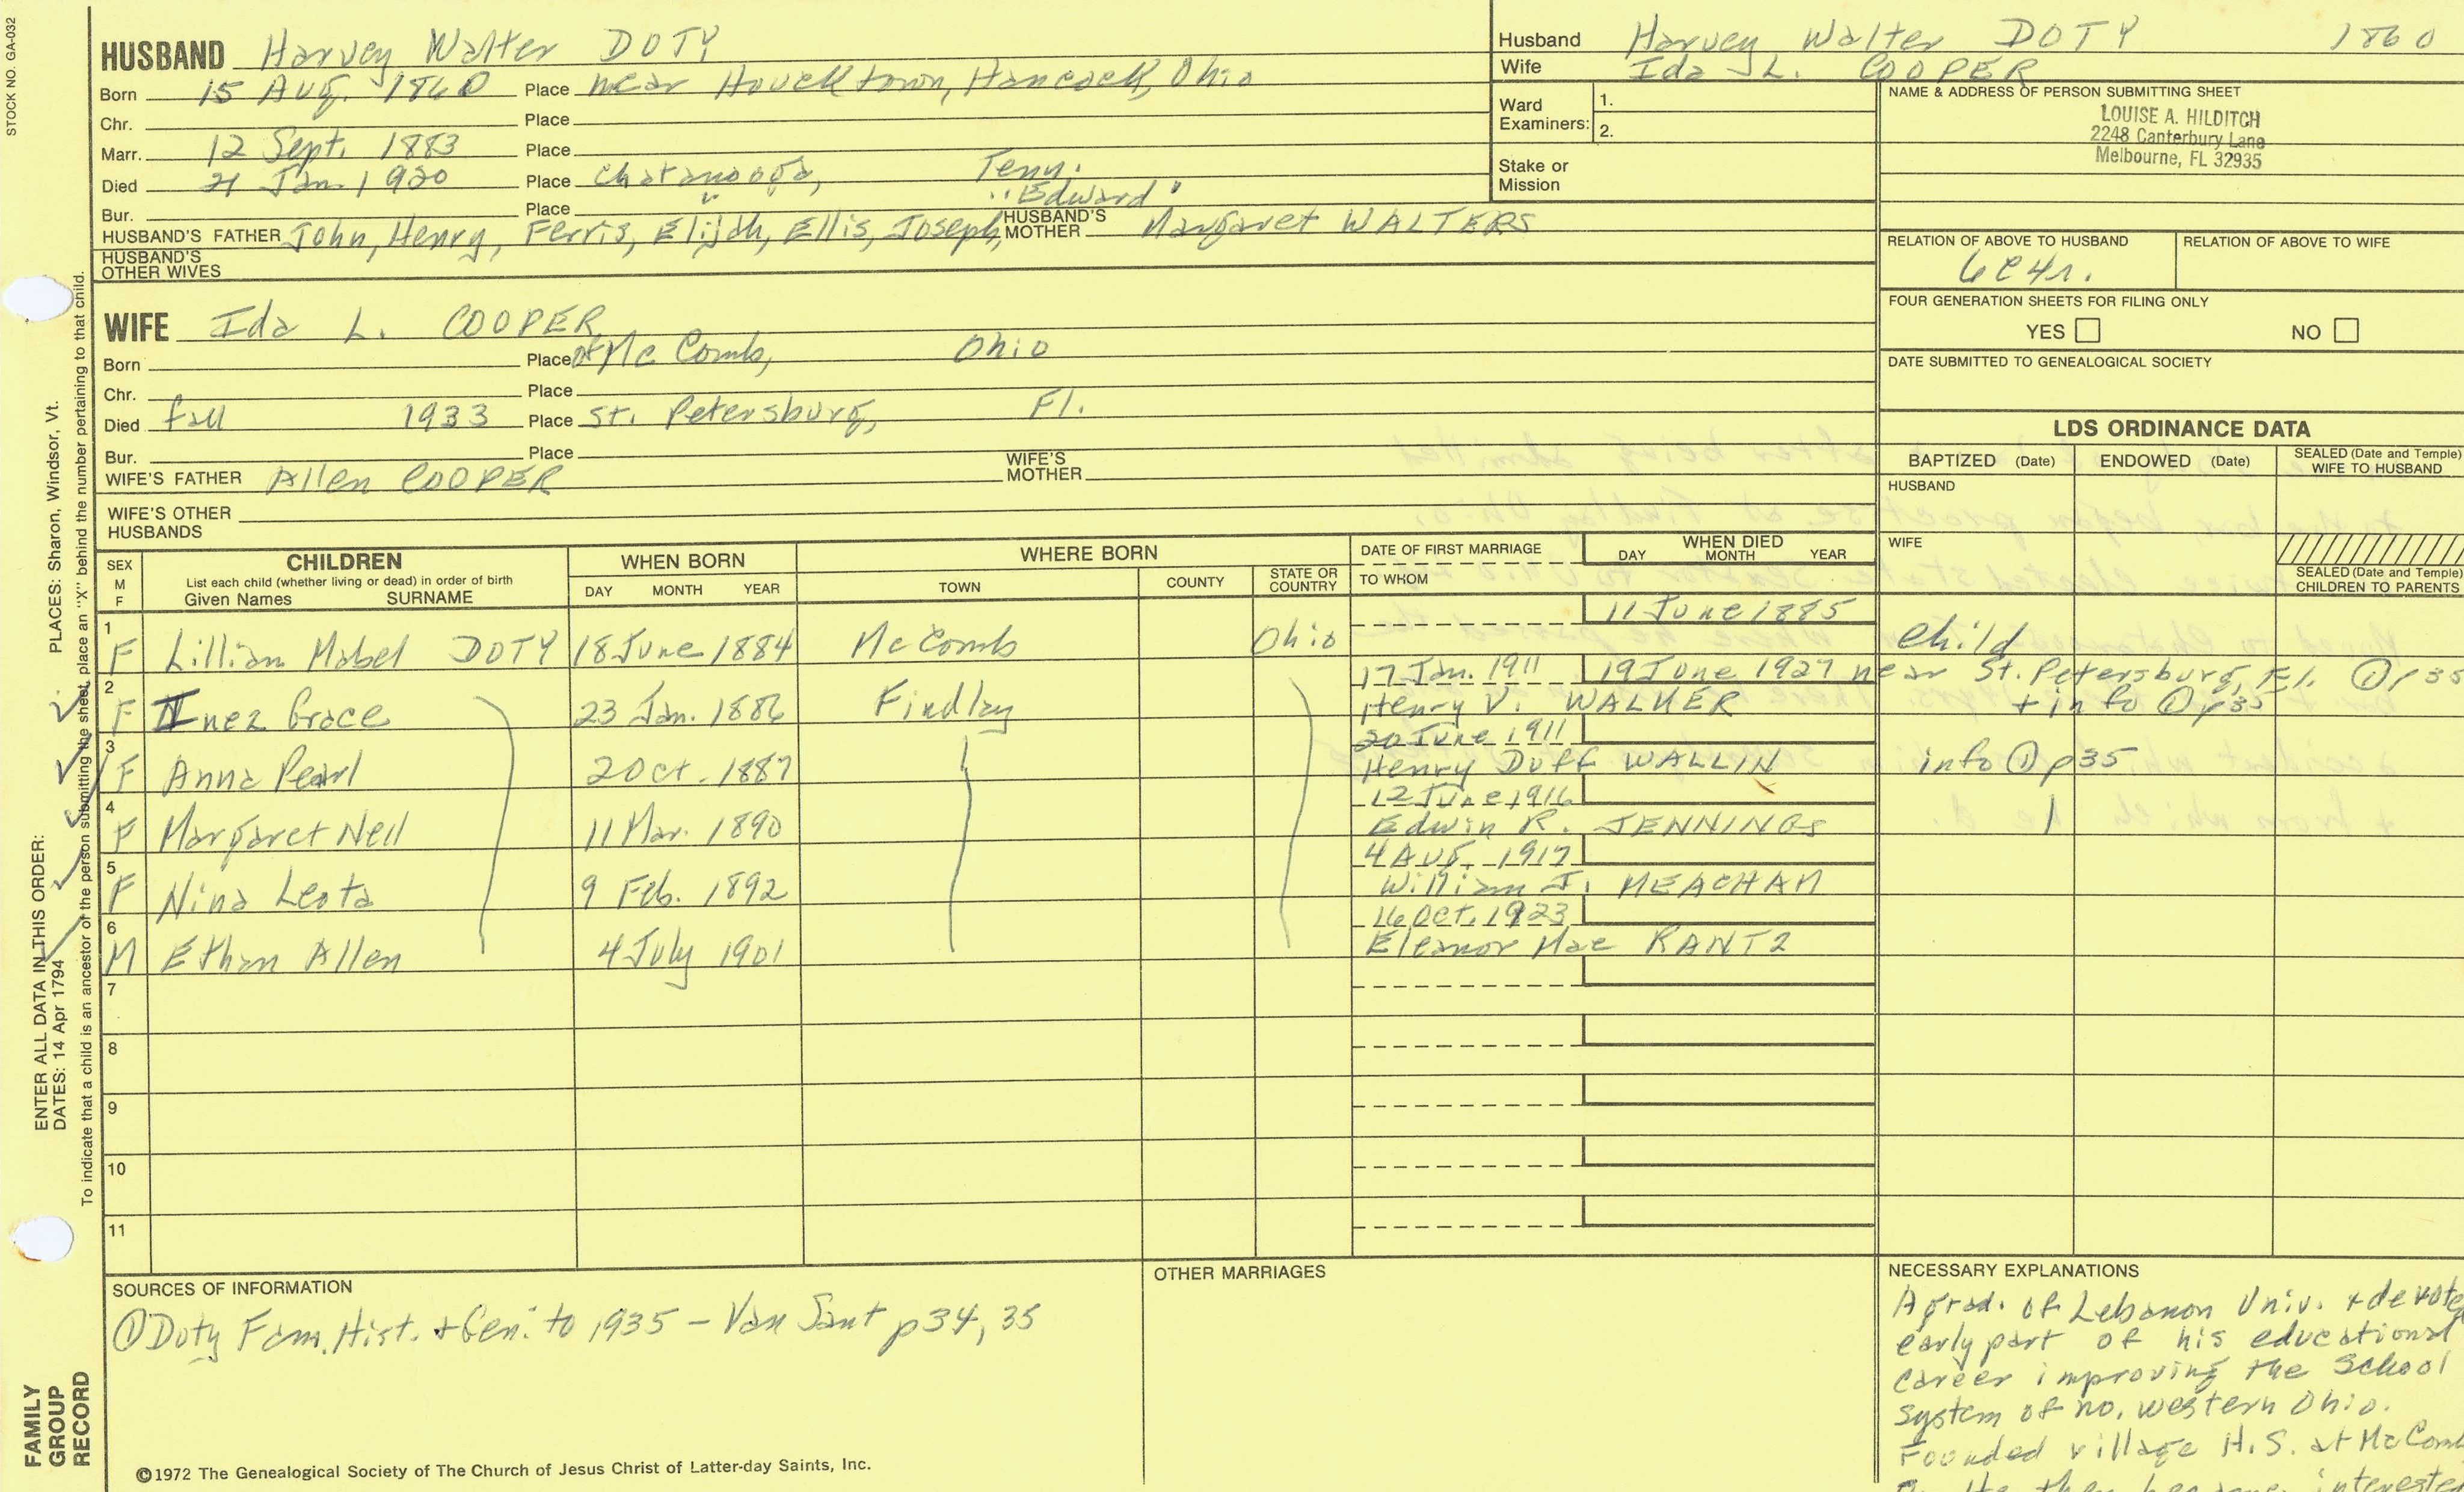 STOCK NO. GA-032
HUSBAND Harvey Walter DOTY
Born 15 Aug. 1860 Place near Houcktown, Hancock, Ohio
Chr. Place
Marr. 12 Sept. 1883 Place
Died 21 Jan. 1920 Place Chatanooga, Tenn.
Bur. Place " "Edward"
HUSBAND'S FATHER John, Henry, Ferris, Elijah, Ellis, Joseph, HUSBAND'S MOTHER Margaret WALTERS
HUSBAND'S OTHER WIVES
WIFE Ida L. COOPER
Born Place of Mc Comb, Ohio
Chr. Place
Died fall 1933 Place St. Petersburg, Fl.
Bur. Place
WIFE'S FATHER Allen COOPER WIFE'S MOTHER
WIFE'S OTHER HUSBANDS
Husband Harvey Walter DOTY 1860
Wife Ida L. COOPER
Ward Examiners: 1.
2.
Stake or Mission
NAME & ADDRESS OF PERSON SUBMITTING SHEET
LOUISE A. HILDITCH
2248 Canterbury Lane
Melbourne, FL 32935
RELATION OF ABOVE TO HUSBAND RELATION OF ABOVE TO WIFE
6c4r.
FOUR GENERATION SHEETS FOR FILING ONLY
YES NO
DATE SUBMITTED TO GENEALOGICAL SOCIETY
LDS ORDINANCE DATA
BAPTIZED (Date) ENDOWED (Date) SEALED (Date and Temple) WIFE TO HUSBAND
HUSBAND
WIFE
SEALED (Date and Temple) CHILDREN TO PARENTS
SEX M F CHILDREN List each child (whether living or dead) in order of birth Given Names SURNAME
WHEN BORN DAY MONTH YEAR
WHERE BORN TOWN COUNTY STATE OR COUNTRY
DATE OF FIRST MARRIAGE TO WHOM
WHEN DIED DAY MONTH YEAR
11 June 1885
1 F Lillian Mabel DOTY 18 June 1884 Mc Comb Ohio child
17 Jan. 1911 19 June 1927 near St. Petersburg, Fl. ① p35
2 F Inez Grace 23 Jan. 1886 Findlay Henry V. WALKER + info ① p35
20 June 1911
3 F Anna Pearl 2 Oct. 1887 Henry Duff WALLIN info ① p35
12 June 1916
4 F Margaret Nell 11 Mar. 1890 Edwin R. JENNINGS
4 Aug. 1917
5 F Nina Leota 9 Feb. 1892 William J. MEACHAM
16 Oct. 1923
6 M Ethan Allen 4 July 1901 Eleanor Mae RANTZ
7
8
9
10
11
SOURCES OF INFORMATION
① Doty Fam. Hist. + Gen. to 1935 - Van Sant p34, 35
OTHER MARRIAGES
NECESSARY EXPLANATIONS
A grad. of Lebanon Univ. + devote
early part of his educational
career improving the School
system of no. western Ohio.
Founded village H.S. at McComb
©1972 The Genealogical Society of The Church of Jesus Christ of Latter-day Saints, Inc.
ENTER ALL DATA IN THIS ORDER:
DATES: 14 Apr 1794 PLACES: Sharon, Windsor, Vt.
To indicate that a child is an ancestor of the person submitting the sheet, place an "X" behind the number pertaining to that child.
FAMILY
GROUP
RECORD